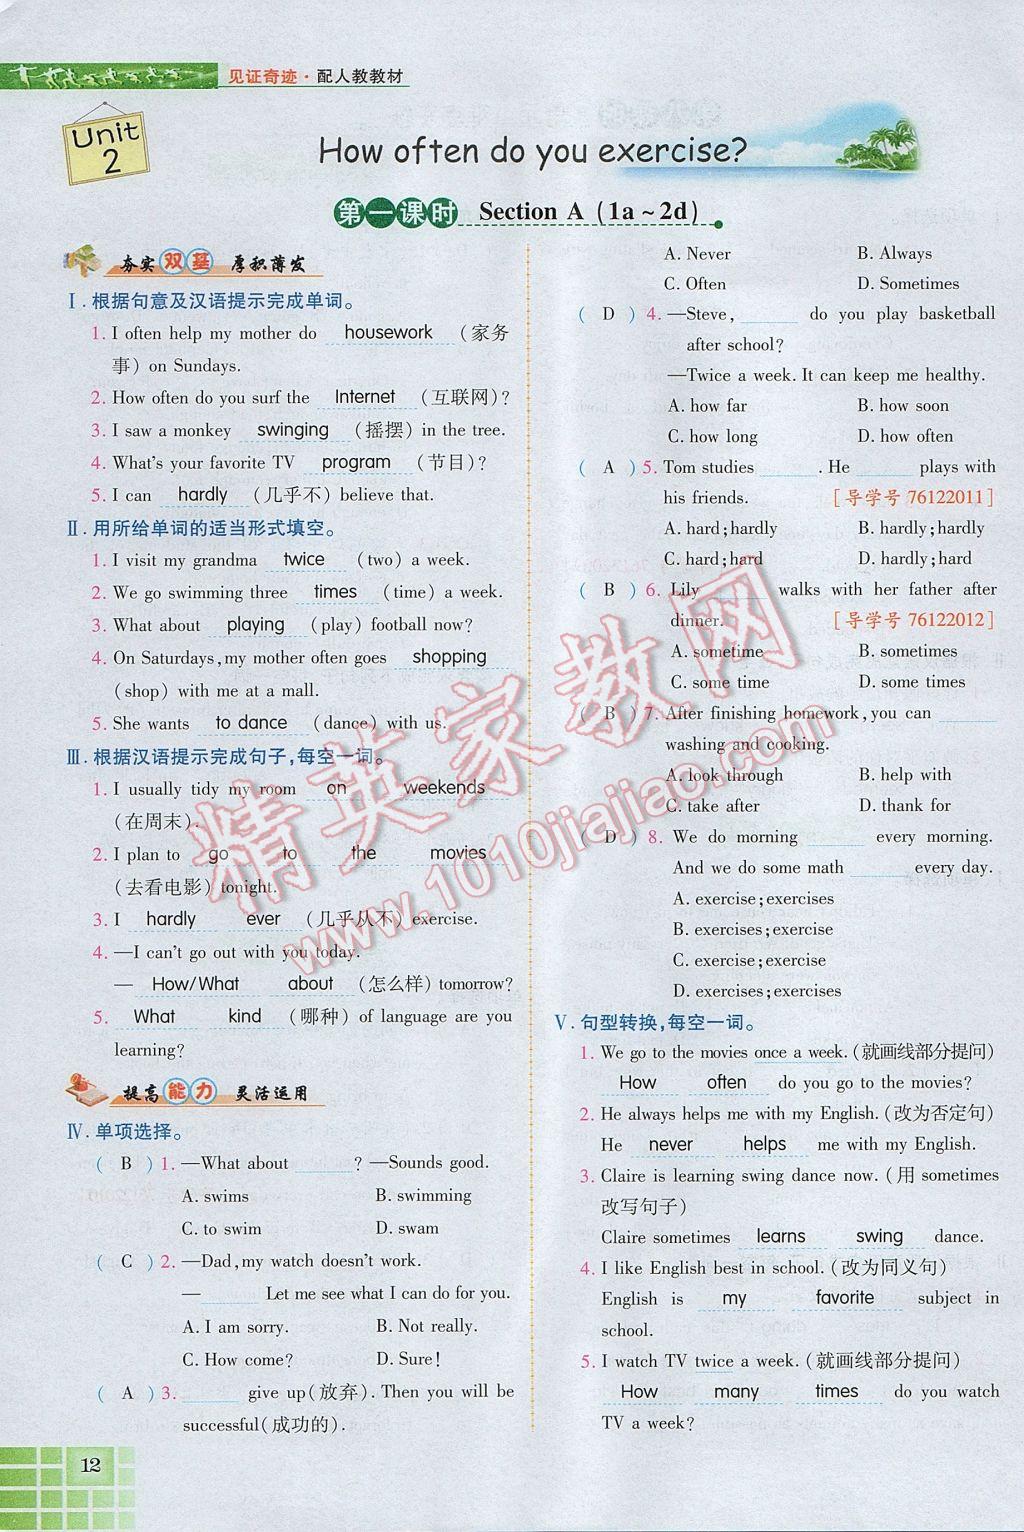 见证奇迹·配人教教材
Unit 2
How often do you exercise?
第一课时 Section A (1a～2d)
夯实双基 厚积薄发
Ⅰ.根据句意及汉语提示完成单词。
1. I often help my mother do housework (家务
事) on Sundays.
2. How often do you surf the Internet (互联网)?
3. I saw a monkey swinging (摇摆) in the tree.
4. What's your favorite TV program (节目)?
5. I can hardly (几乎不) believe that.
Ⅱ.用所给单词的适当形式填空。
1. I visit my grandma twice (two) a week.
2. We go swimming three times (time) a week.
3. What about playing (play) football now?
4. On Saturdays, my mother often goes shopping
(shop) with me at a mall.
5. She wants to dance (dance) with us.
Ⅲ.根据汉语提示完成句子,每空一词。
1. I usually tidy my room on weekends
(在周末).
2. I plan to go to the movies
(去看电影) tonight.
3. I hardly ever (几乎从不) exercise.
4. —I can't go out with you today.
— How/What about (怎么样) tomorrow?
5. What kind (哪种) of language are you
learning?
提高能力 灵活运用
Ⅳ.单项选择。
( B ) 1. —What about ____? —Sounds good.
A. swims B. swimming
C. to swim D. swam
( C ) 2. —Dad, my watch doesn't work.
—____ Let me see what I can do for you.
A. I am sorry. B. Not really.
C. How come? D. Sure!
( A ) 3. ____ give up(放弃). Then you will be
successful(成功的).
A. Never B. Always
C. Often D. Sometimes
( D ) 4. —Steve, ____ do you play basketball
after school?
—Twice a week. It can keep me healthy.
A. how far B. how soon
C. how long D. how often
( A ) 5. Tom studies ____. He ____ plays with
his friends. [导学号 76122011]
A. hard; hardly B. hardly; hard
C. hard; hard D. hardly; hardly
( B ) 6. Lily ____ walks with her father after
dinner. [导学号 76122012]
A. sometime B. sometimes
C. some time D. some times
( B ) 7. After finishing homework, you can ____
washing and cooking.
A. look through B. help with
C. take after D. thank for
( D ) 8. We do morning ____ every morning.
And we do some math ____ every day.
A. exercise; exercises
B. exercises; exercise
C. exercise; exercise
D. exercises; exercises
Ⅴ.句型转换,每空一词。
1. We go to the movies once a week.(就画线部分提问)
How often do you go to the movies?
2. He always helps me with my English.(改为否定句)
He never helps me with my English.
3. Claire is learning swing dance now.(用 sometimes
改写句子)
Claire sometimes learns swing dance.
4. I like English best in school.(改为同义句)
English is my favorite subject in
school.
5. I watch TV twice a week.(就画线部分提问)
How many times do you watch
TV a week?
12
精英家教网
www.1010jiajiao.com